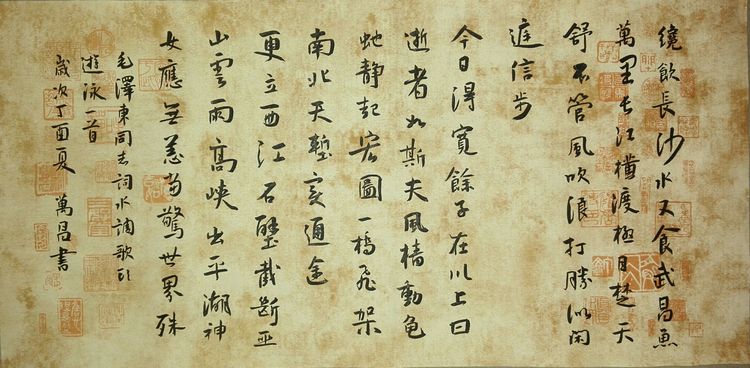 纔飲長沙水又食武昌魚
萬里長江橫渡極目楚天
舒不管風吹浪打勝似閑
庭信步
今日得寬餘子在川上曰
逝者如斯夫風檣動龜
蛇靜起宏圖一橋飛架
南北天塹變通途
更立西江石壁截斷巫
山雲雨高峽出平湖神
女應無恙當驚世界殊
毛澤東同志詞水調歌頭
遊泳一首
歲次丁酉夏 萬昌書